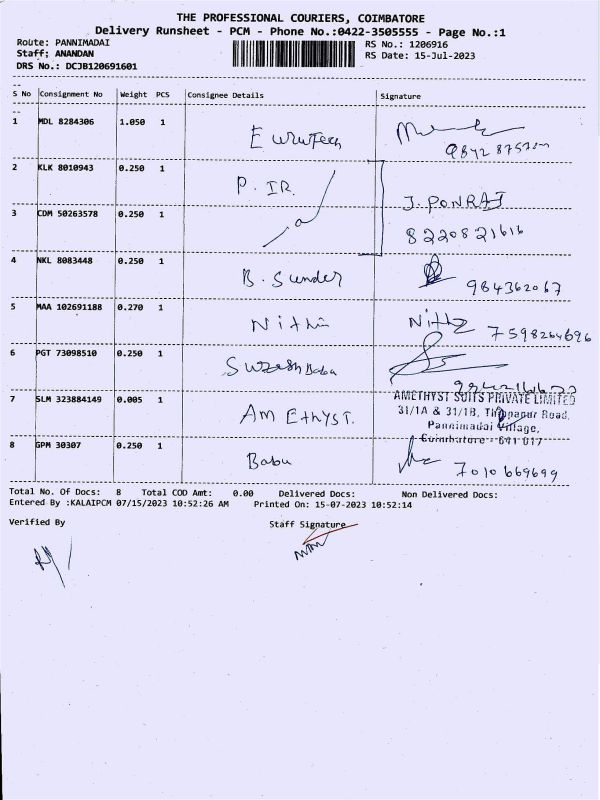 THE PROFESSIONAL COURIERS, COIMBATORE
Delivery Runsheet - PCM - Phone No.:0422-3505555 - Page No.:1
Route: PANNIMADAI
RS No.: 1206916
Staff; ANANDAN
RS Date: 15-Jul-2023
DRS No.: DCJB120691601
S No Consignment No Weight PCS Consignee Details Signature
1 MDL 8284306 1.050 1
2 KLK 8010943 0.250 1 P. IR.
J. PONRAJ
3 CDM 50263578 0.250 1 8220821616
4 NKL 8083448 0.250 1 B. Sunder 984362067
5 MAA 102691188 0.270 1 Nithin 7598264696
6 PGT 73098510 0.250 1 Suresh Babu
7 SLM 323884149 0.005 1 AMEthyST.
AMETHYST SUITS PRIVATE LIMITED
31/1A & 31/1B, Thoppanur Road,
Pannimadai Village,
Coimbatore - 641 017
8 GPM 30307 0.250 1 Babu 7010669699
Total No. Of Docs: 8 Total COD Amt: 0.00 Delivered Docs: Non Delivered Docs:
Entered By :KALAIPCM 07/15/2023 10:52:26 AM Printed On: 15-07-2023 10:52:14
Verified By Staff Signature